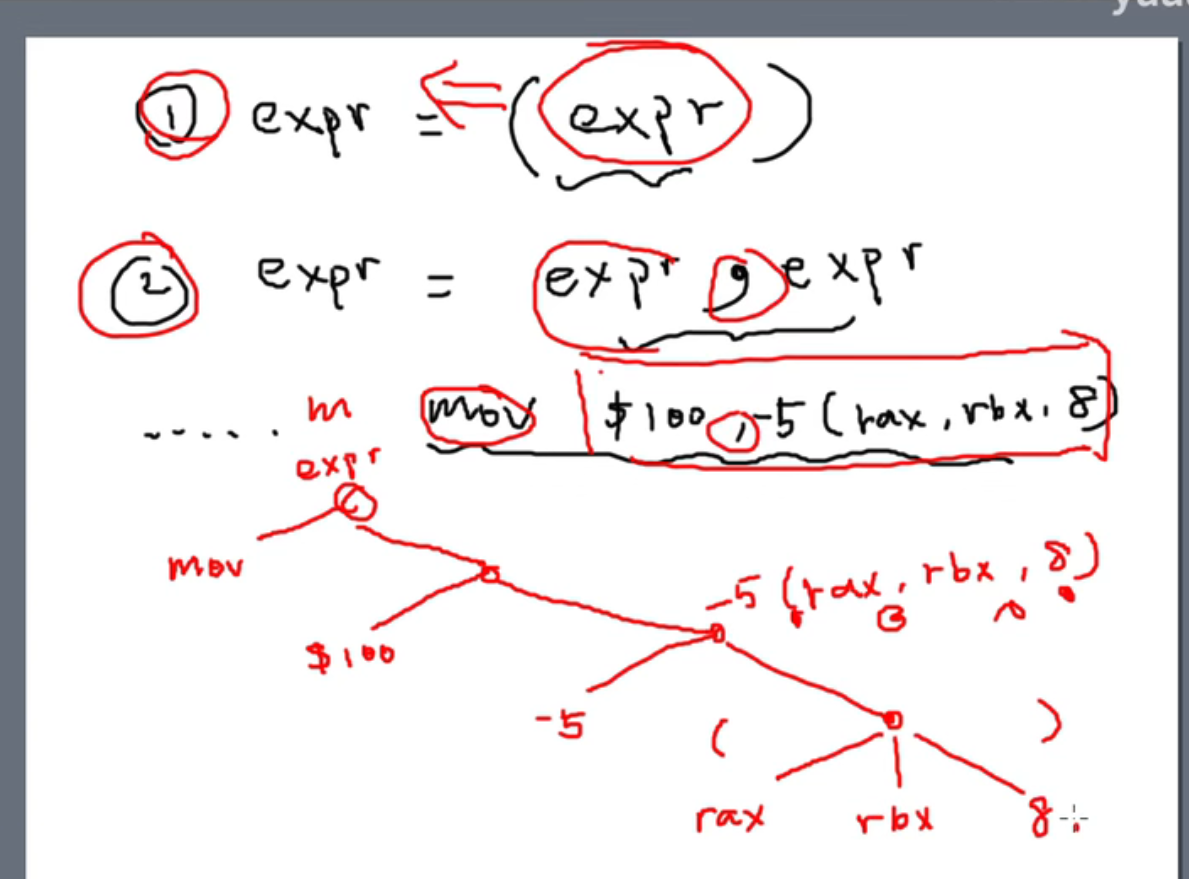 ① expr = (expr)
② expr = expr , expr
m mov $100, -5(rax, rbx, 8)
expr
mov
-5(rax, rbx, 8)
$100
-5 ( )
rax rbx 8